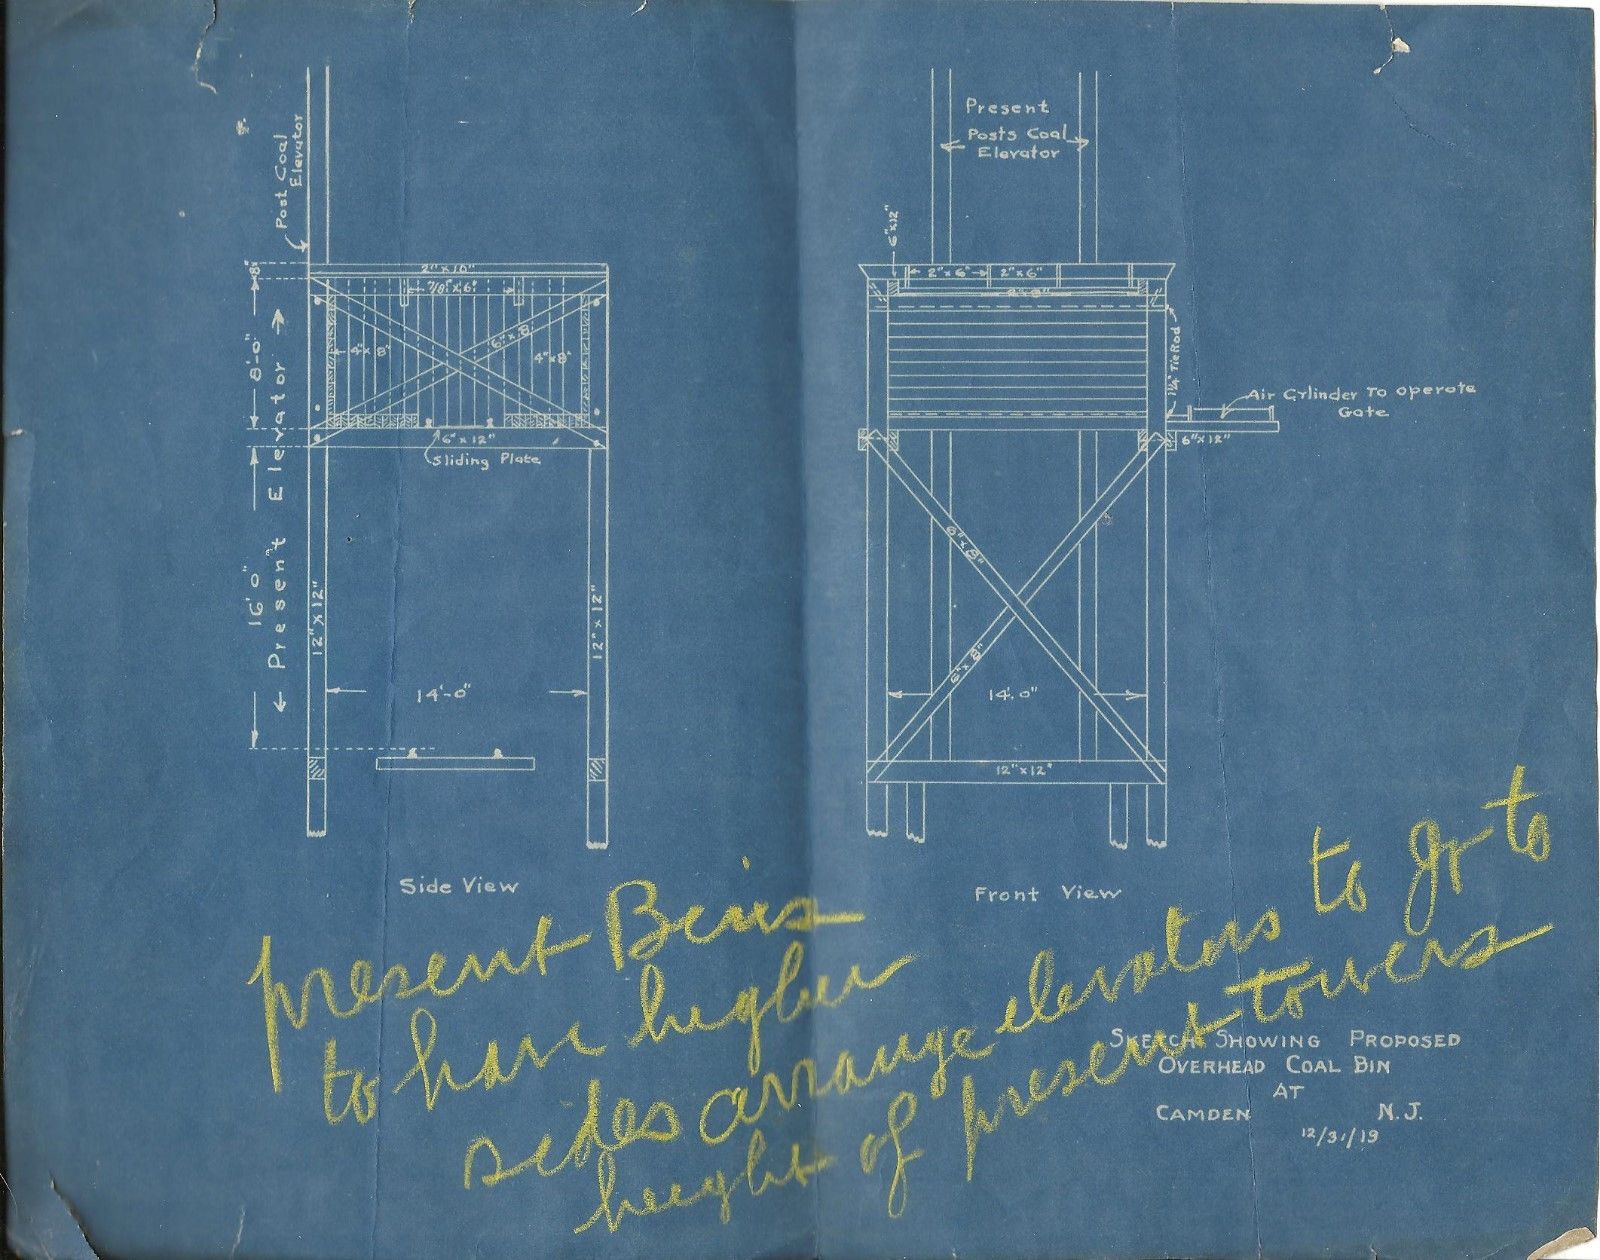 Post Coal
Elevator
8"
8'-0"
16'-0"
← Present Elevator →
2" x 10"
7/8" x 6"
4" x 8"
6" x 8"
4" x 8"
6" x 12"
Sliding Plate
12" x 12"
12" x 12"
14'-0"
Side View
Present
Posts Coal
Elevator
6" x 12"
2" x 6"
2" x 6"
1¼" Tie Rod
Air Cylinder To Operate
Gate
6" x 12"
6" x 8"
6" x 8"
14'-0"
12" x 12"
Front View
present Bins
to have higher
sides arrange elevators to go to
height of present towers
SKETCH SHOWING PROPOSED
OVERHEAD COAL BIN
AT
CAMDEN N.J.
12/31/19